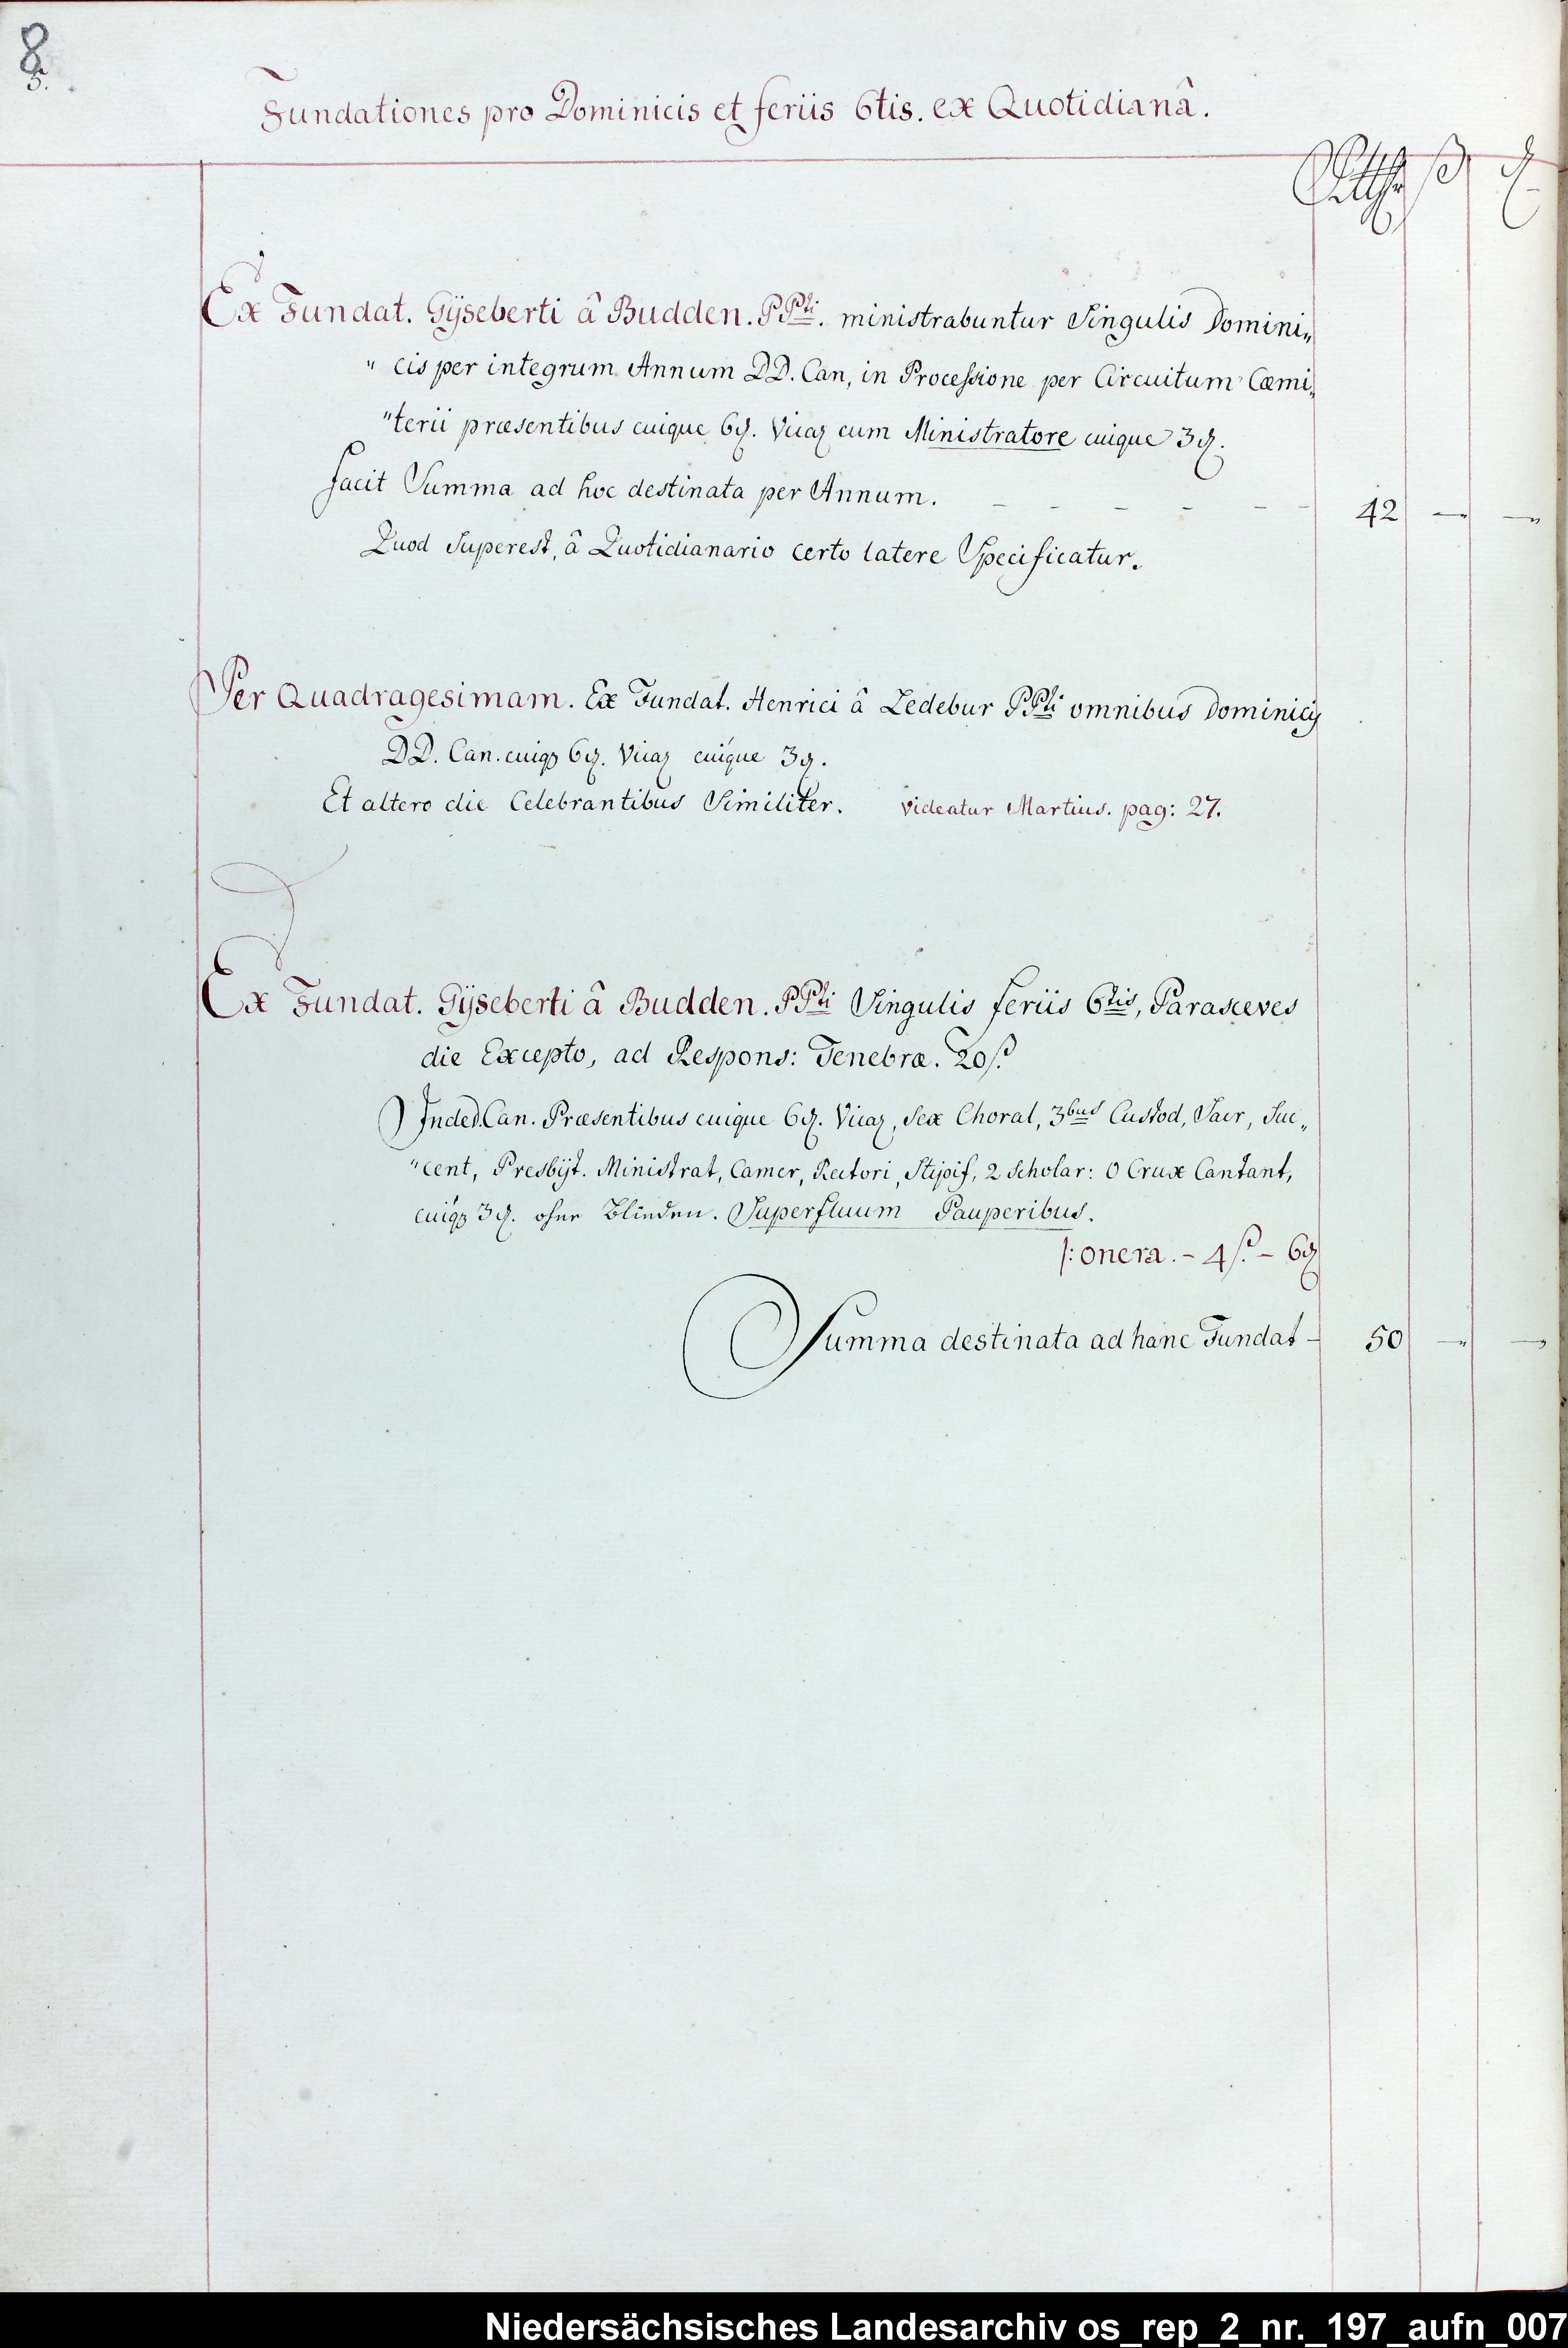 8
5.
Fundationes pro Dominicis et feriis 6tis. ex Quotidianâ.
Rthlr ß ₰
Ex Fundat. Gÿseberti â Budden. PPti. ministrabuntur Singulis Domini„
" cis per integrum Annum DD. Can, in Processione per Circuitum Cœmi„
"terii præsentibus cuique 6₰. Vicaz cum Ministratore cuique 3₰.
facit Summa ad hoc destinata per Annum. - - - - - - 42 — —
Quod Superest, â Quotidianario certo latere Specificatur.
Per Quadragesimam. Ex Fundat. Henrici â Ledebur PPti omnibus Dominicis
DD. Can. cuiqz 6₰. Vicaz cuique 3₰.
Et altero die Celebrantibus Similiter. videatur Martius. pag: 27.
Ex Fundat. Gÿseberti â Budden. PPti Singulis feriis 6tis, Parasceves
die Excepto, ad Respons: Tenebræ. 20ß
Inde d. Can. Præsentibus cuique 6₰. Vicaz, Sex Choral, 3bus Custod, Sacr, Suc„
"cent, Presbÿt. Ministrat, Camer, Rectori, Stipif, 2 Scholar: O Crux Cantant,
cuiqz 3₰. ohne Blinden. Superfluum Pauperibus.
/: onera. - 4ß. - 6₰
Summa destinata ad hanc Fundat - 50 — —
Niedersächsisches Landesarchiv os_rep_2_nr._197_aufn_007